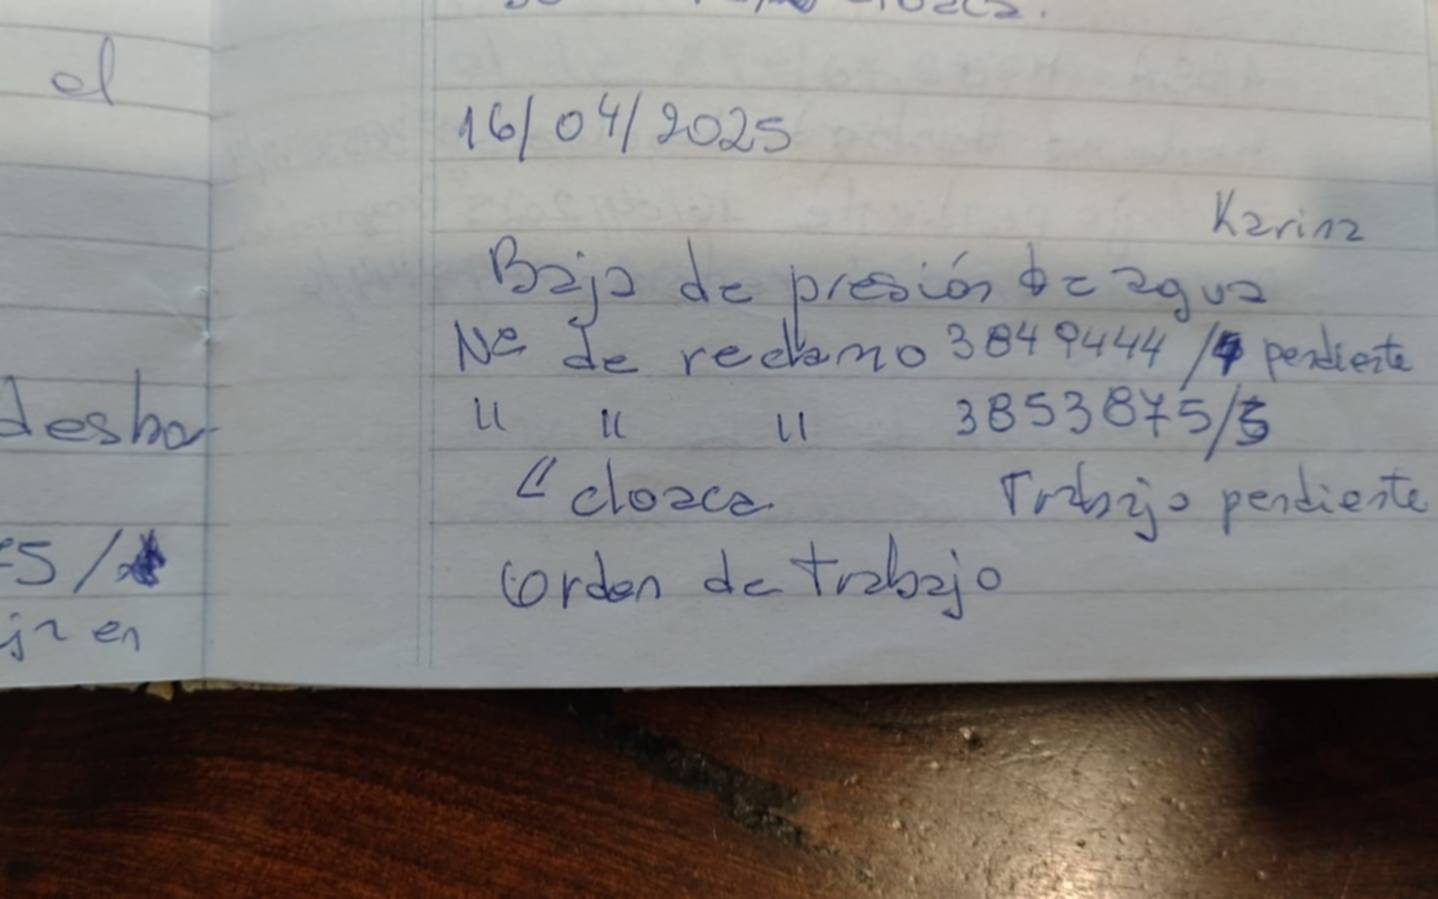 el
desbo
5/
en
cloaca.
16/04/2025
Karina
Baja de presión de agua
Nº de reclamo 3849444/4 pendiente
" " " 3853875/5
" cloaca Trabajo pendiente
Orden de trabajo